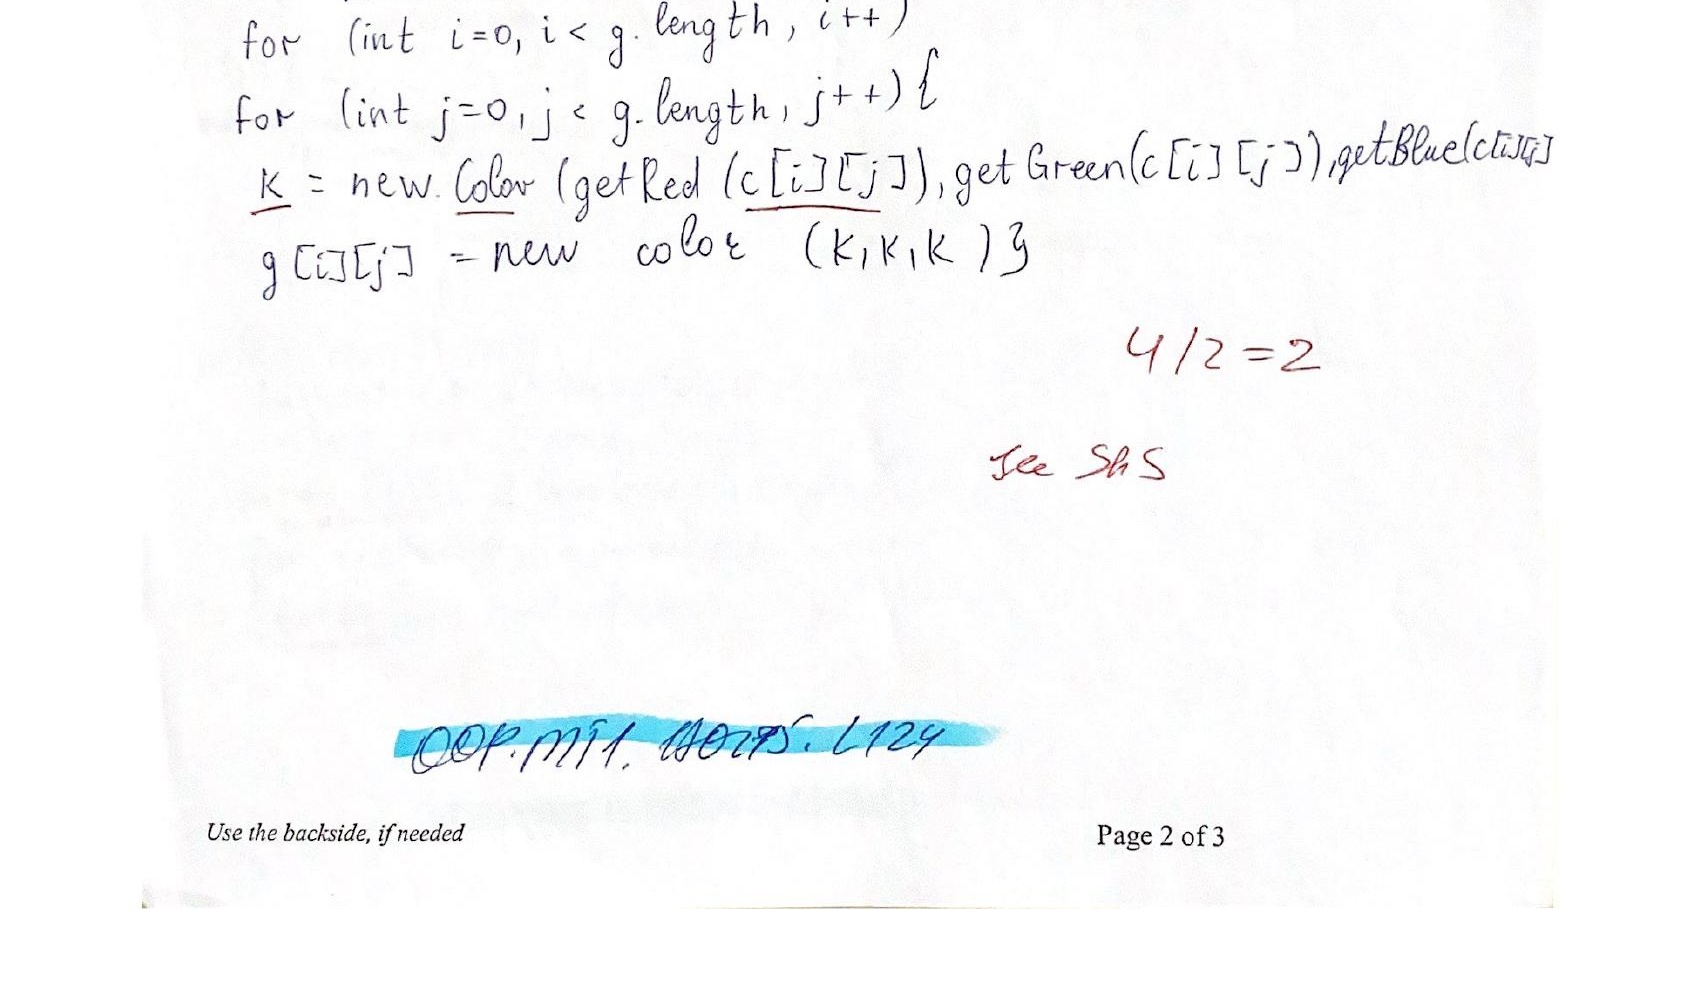 for (int i=0, i < g. length, i++)
for (int j=0, j < g. length, j++) {
K = new. Color (getRed (c[i][j]), getGreen(c[i][j]), getBlue(c[i][j]
g[i][j] = new color (K, K, K ) }
4/2=2
See
OOP. L124
Use the backside, if needed
Page 2 of 3